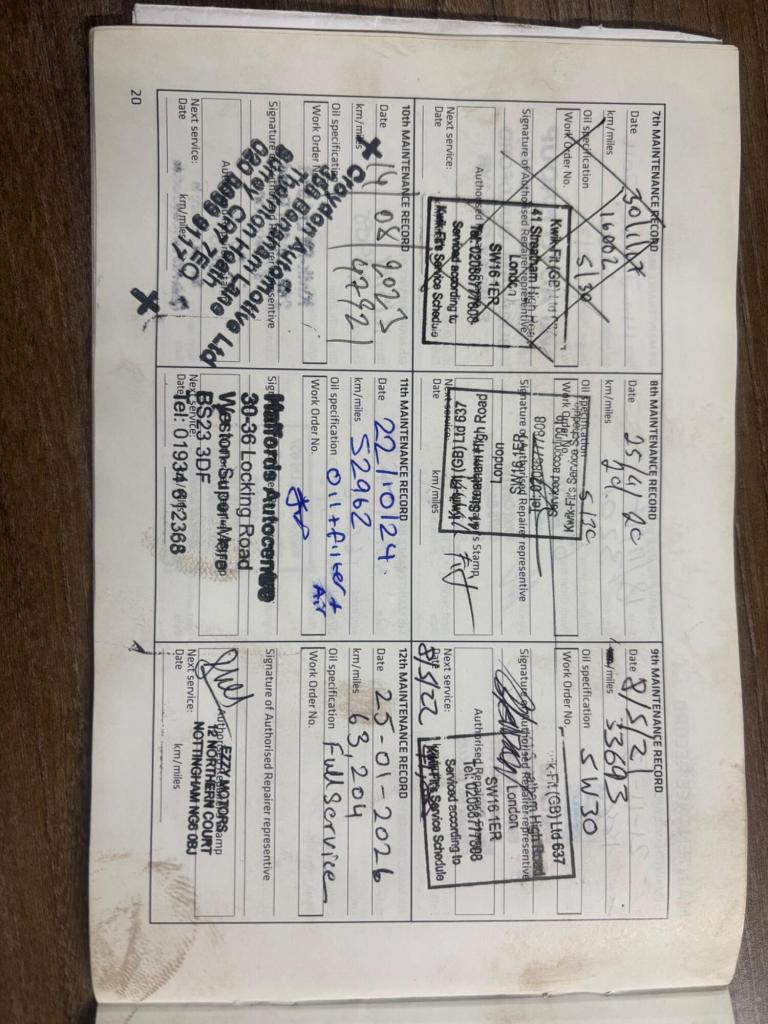 7th MAINTENANCE RECORD
Date 30/1/17
km/miles 16002
Oil specification 5/30
Work Order No.
Signature of Authorised Repairer representative
Kwik-Fit (GB) Ltd
41 Streatham High Road
London
SW16 1ER
Tel: 02086777608
Serviced according to
Kwik-Fit's Service Schedule
Authorised
Next service:
Date
8th MAINTENANCE RECORD
Date 25/4/20
km/miles
Oil specification 5/30
Work Order No.
Signature of Authorised Repairer representative
Kwik-Fit (GB) Ltd 637
41 Streatham High Road
London
SW16 1ER
Tel: 02086777608
Serviced according to
Kwik-Fit's Service Schedule
Stamp
Next service:
km/miles
9th MAINTENANCE RECORD
Date 8/5/21
km/miles 33693
Oil specification 5W30
Work Order No.
Signature of Authorised Repairer representative
Kwik-Fit (GB) Ltd 637
41 Streatham High Road
London
SW16 1ER
Tel: 02086777608
Serviced according to
Kwik-Fit's Service Schedule
Authorised Repairer's
Next service:
Date
8/5/22
10th MAINTENANCE RECORD
Date 14/08/2023
km/miles 47921
Oil specification
Work Order No.
Signature of Authorised Repairer representative
Croydon Automotive Ltd
Next service:
Date
km/miles
11th MAINTENANCE RECORD
Date 22/10/24.
km/miles 52962
Oil specification Oil + filter + Air
Work Order No.
Halfords Autocentre
30-36 Locking Road
Weston-Super-Mare
BS23 3DF
Tel: 01934 612368
Next service:
Date
12th MAINTENANCE RECORD
Date 25-01-2026
km/miles 63,204
Oil specification Full Service
Work Order No.
Signature of Authorised Repairer representative
EZZY MOTORS
12 NORTHERN COURT
NOTTINGHAM NG6 0BJ
Next service:
Date
km/miles
20